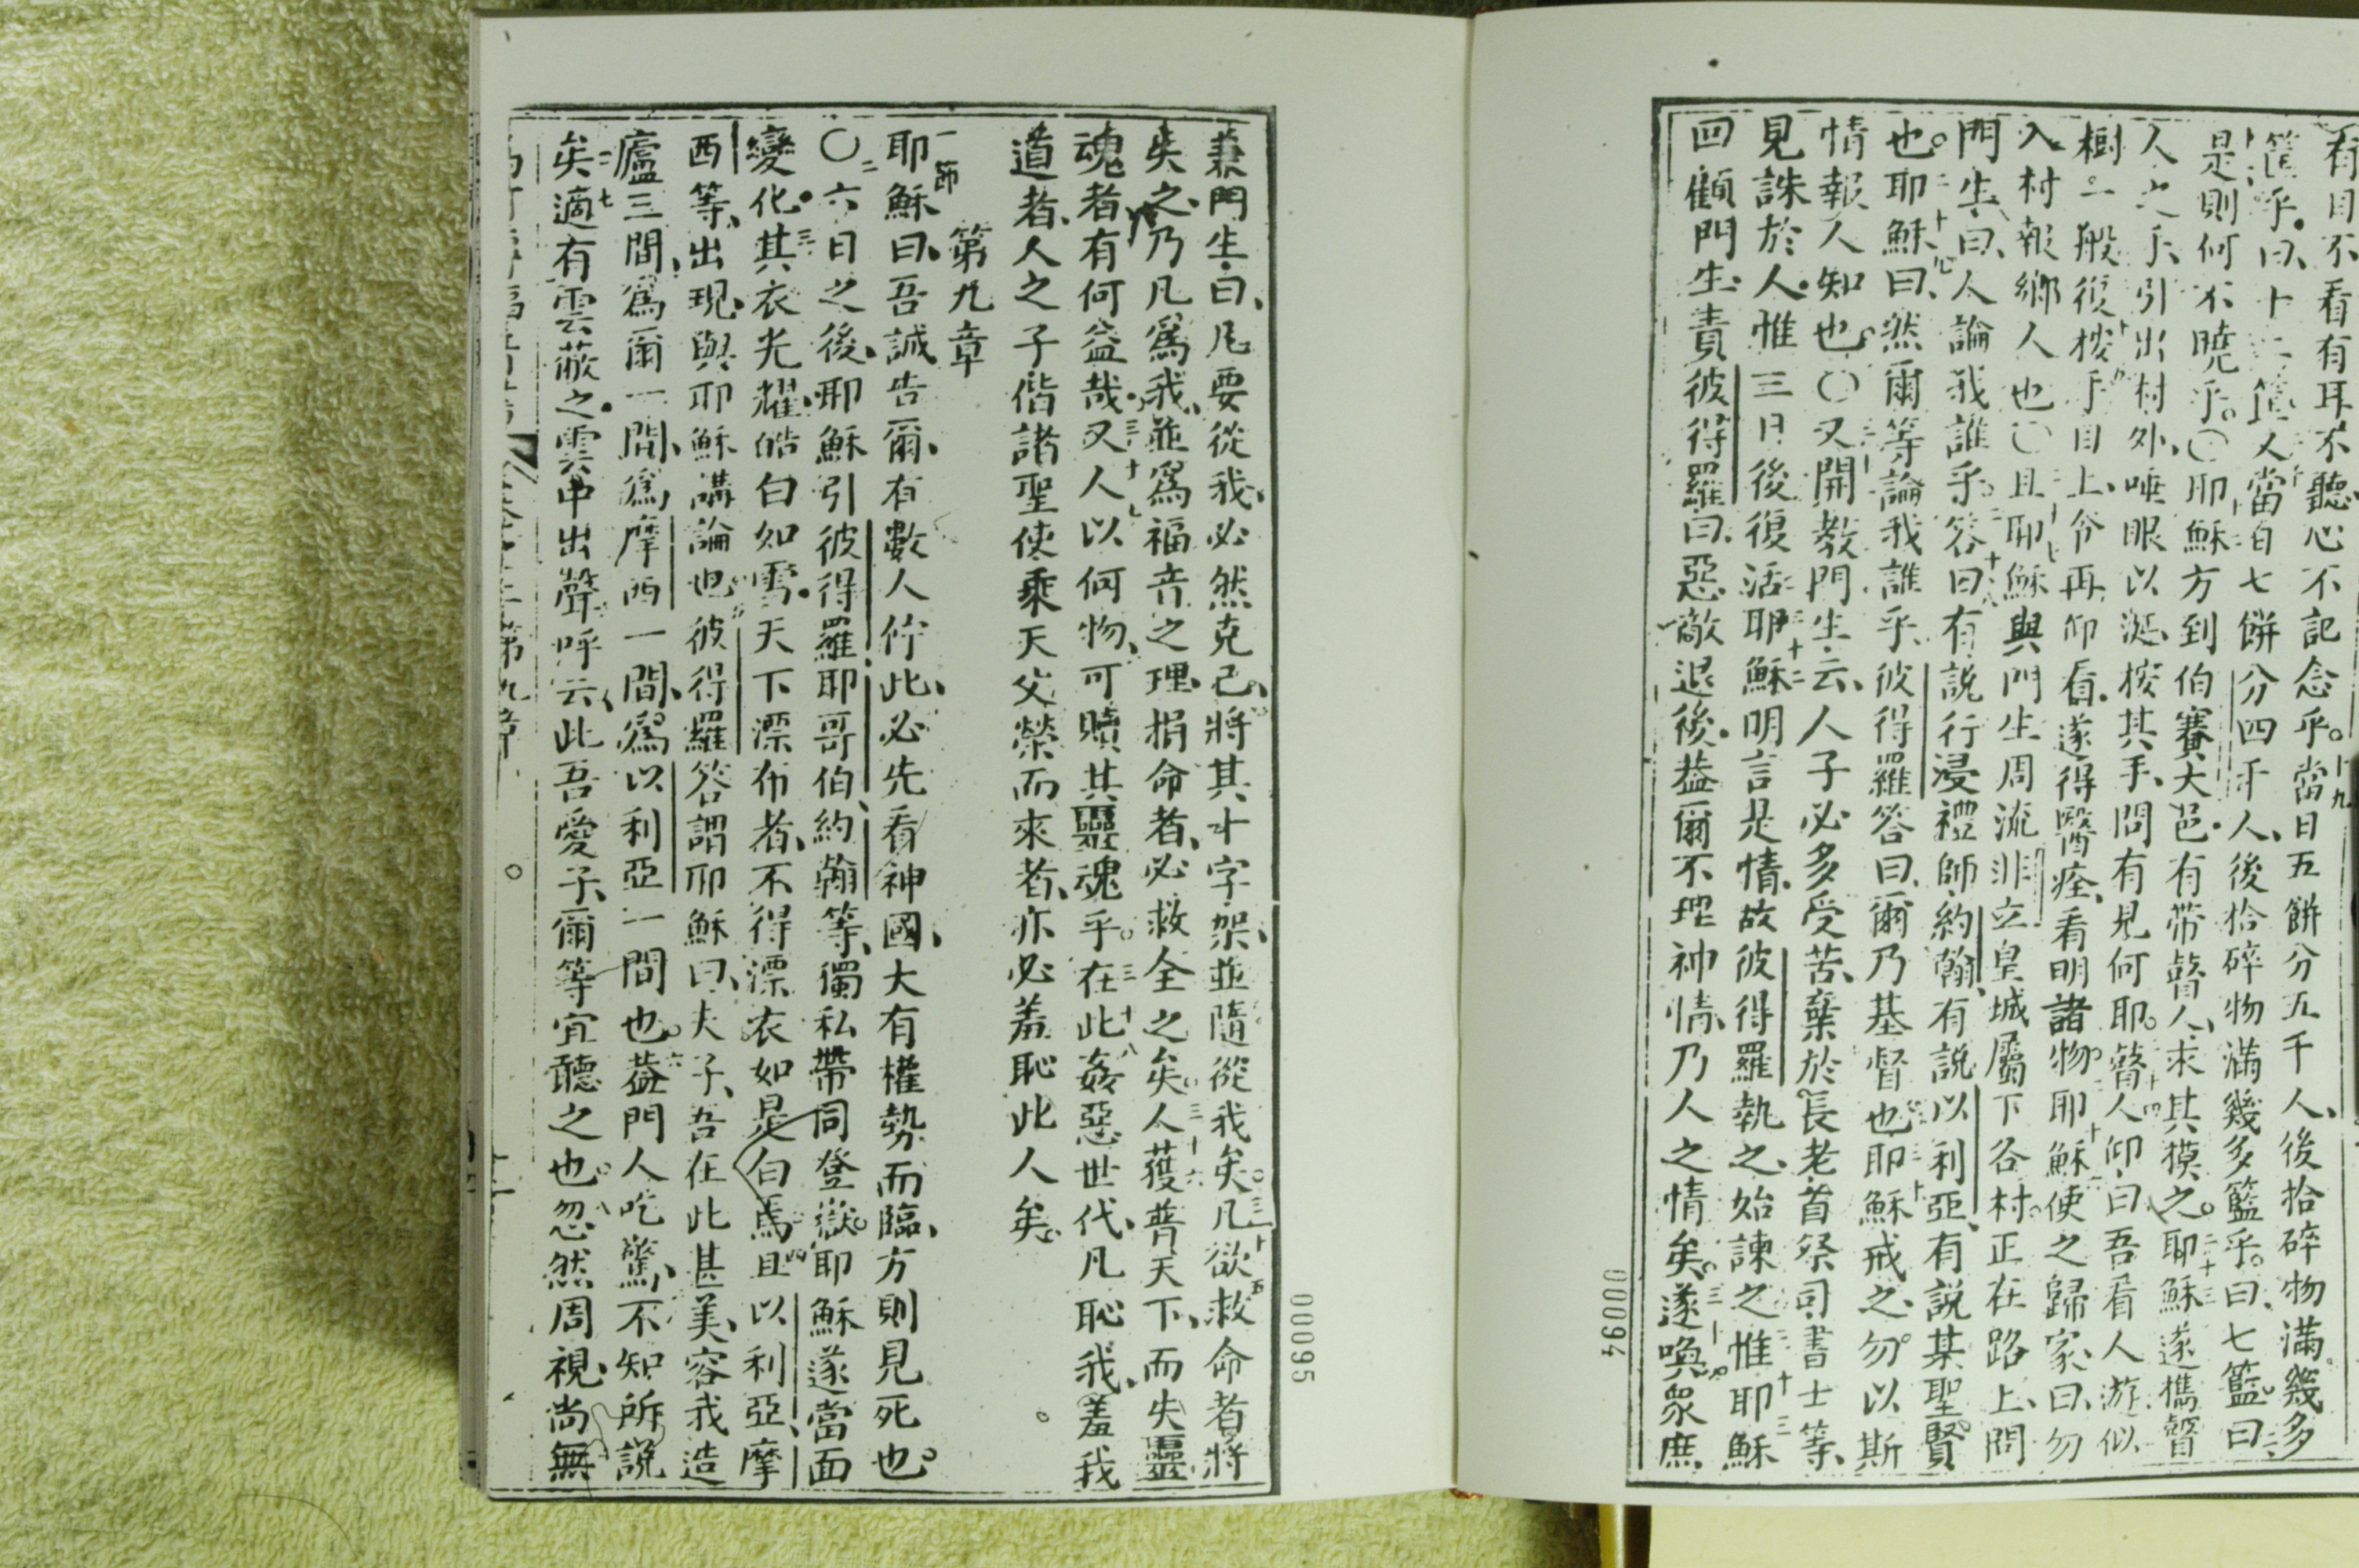 有目不看有耳不聽心不記念乎。十九當日五餅分五千人、後拾碎物滿幾多
筐乎。曰、十二筐、二十又當自七餅分四千人、後拾碎物滿幾多籃乎。曰、七籃。曰
是則何不曉乎。〇耶穌方到伯賽大邑。有帶瞽人、求其摸之。二十三耶穌遂攜瞽
人之手、引出村外、唾眼以涎、按其手、問有見何耶。瞽人仰曰、吾看人游似
樹一般後按手目上、令再仰看。遂得醫痊、看明諸物。耶穌使之歸家曰、勿
入村報鄉人也〇且耶穌與門生周流非立皇城屬下各村。正在路上、問
門生、曰、人論我誰乎。二十八答曰、有說行浸禮師約翰、有說以利亞、有說某聖賢
也。二十九耶穌曰、然爾等論我誰乎、彼得羅答曰、爾乃基督也三十耶穌戒之、勿以斯
情報人知也。〇又開教門生、云、人子必多受苦、棄於長老首祭司書士等、
見誅於人。惟三日後復活耶三十二穌明言是情、故彼得羅執之、始諫之惟三十三耶穌
回顧門生、責彼得羅曰、惡敵退後。葢爾不理神情、乃人之情矣。三十四遂喚眾庶
兼門生、曰、凡要從我、必然克己、將其十字架、並隨從我矣。三十五凡欲救命者將
失之、乃凡爲我、並爲福音之理、捐命者、必救全之矣。三十六人獲普天下、而失靈
魂者、有何益哉。三十七又人以何物、可贖其靈魂乎。三十八在此姦惡世代、凡恥我、羞我
道者、人之子偕諸聖使乘天父榮而來者、亦必羞恥此人矣。
第九章
一節耶穌曰、吾誠告爾、有數人佇此、必先看神國、大有權勢而臨、方則見死也。
〇二六日之後、耶穌引彼得羅、耶哥伯、約翰等、獨私帶同登嶽。耶穌遂當面
變化。三其衣光耀、皓白如雪。天下漂布者、不得漂衣如是白焉四且以利亞、摩
西等、出現、與耶穌講論也。五彼得羅答謂耶穌曰、夫子、吾在此甚美、容我造
廬三間、爲爾一間、爲摩西一間、爲以利亞一間也。六葢門人吃驚、不知所說
矣七適有雲蔽之。雲中出聲呼云、此吾愛子、爾等宜聽之也。八忽然周視、尚無
第九章
00095
00094